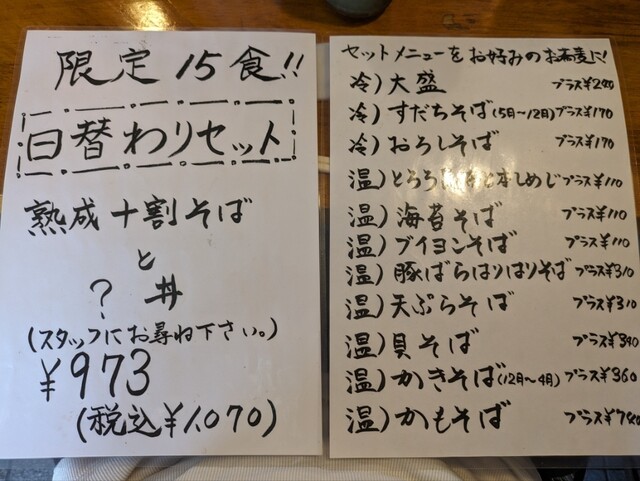 限定15食!!
日替わりセット
熟成十割そば
と
? 丼
(スタッフにお尋ね下さい。)
¥973
(税込¥1,070)
セットメニューをお好みのお蕎麦に!
冷)大盛 プラス¥240
冷)すだちそば(5月~12月)プラス¥170
冷)おろしそば プラス¥170
温)とろろ 本しめじ プラス¥110
温)海苔そば プラス¥110
温)ブイヨンそば プラス¥110
温)豚ばらはりはりそば プラス¥310
温)天ぷらそば プラス¥310
温)貝そば プラス¥390
温)かきそば(12月~4月) プラス¥360
温)かもそば プラス